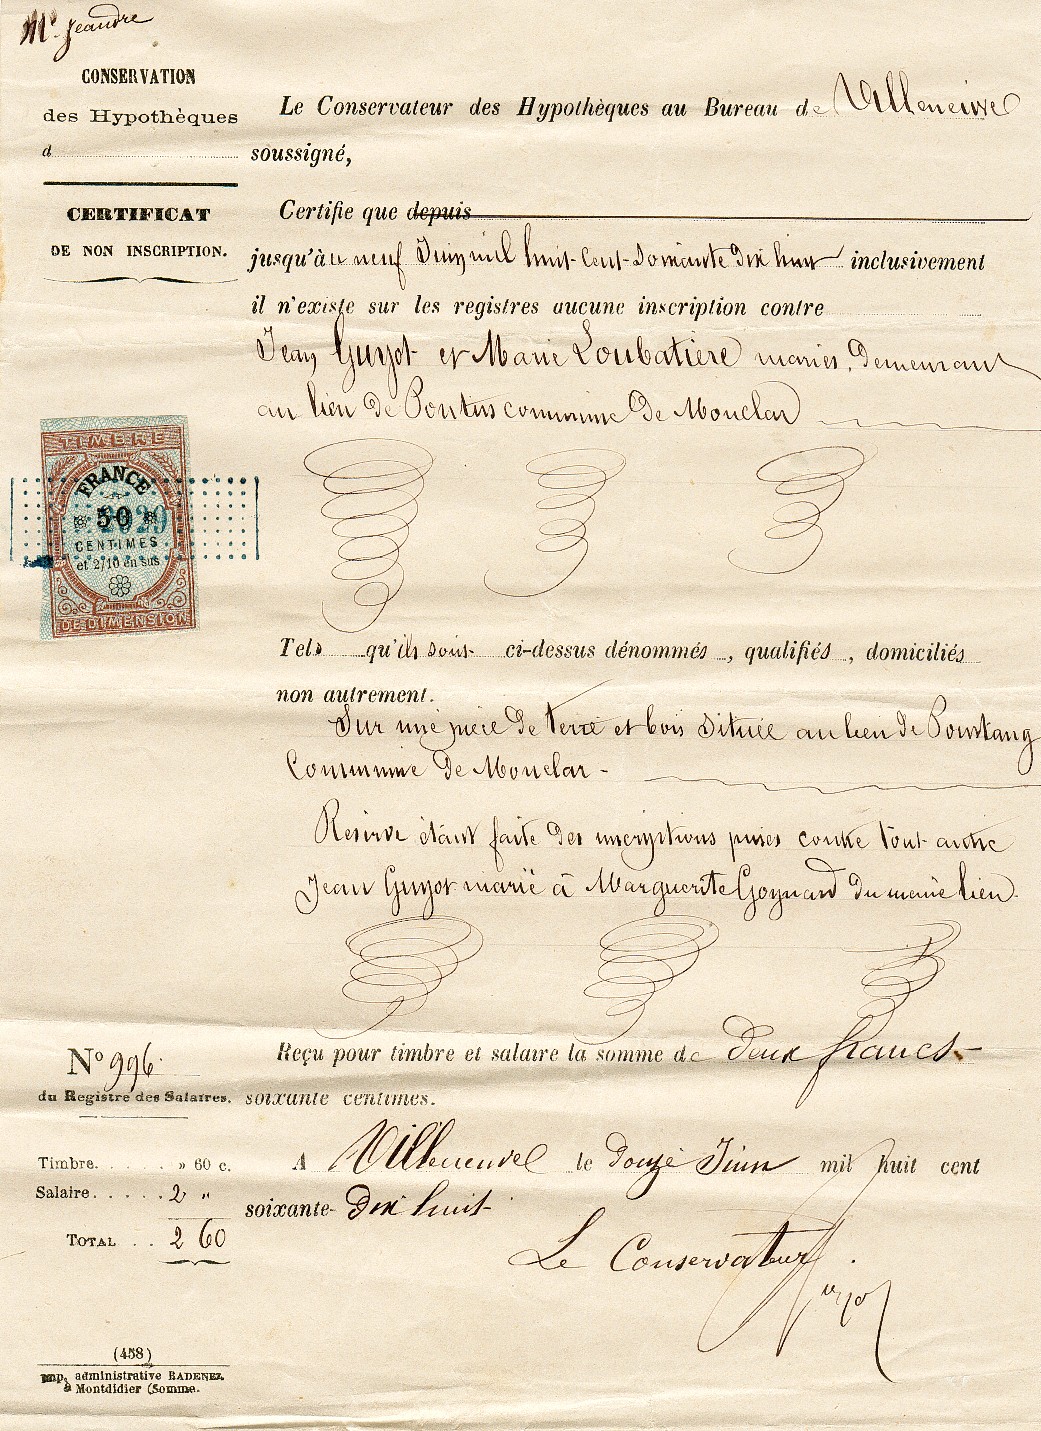 Mr Jeandre
CONSERVATION
des Hypothèques
d
CERTIFICAT
DE NON INSCRIPTION.
Le Conservateur des Hypothèques au Bureau de Villeneuve
soussigné,
Certifie que depuis
jusqu'à au neuf Juin mil huit-cent-soixante dix huit inclusivement
il n'existe sur les registres aucune inscription contre
Jean Guyot et Marie Loubatière mariés, demeurant
au lieu de Pontus commune de Monclar
TIMBRE
FRANCE
50
2029
CENTIMES
et 2/10 en sus
DE DIMENSION
Tels qu'ils sont ci-dessus dénommés, qualifiés, domiciliés
non autrement.
Sur une pièce de terre et bois située au lieu de Pourtang
Commune de Monclar -
Réserve étant faite des inscriptions prises contre tout autre
Jean Guyot marié à Marguerite Goynard du même lien.
Reçu pour timbre et salaire la somme de deux francs
soixante centimes.
No 996.
du Registre des Salaires.
Timbre. . . . . . » 60 c.
Salaire. . . . . . 2 "
TOTAL . . 2 60
A Villeneuve le douze Juin mil huit cent
soixante- dix huit
Le Conservateur.
(458)
Imp. administrative RADENEZ.
à Montdidier (Somme.